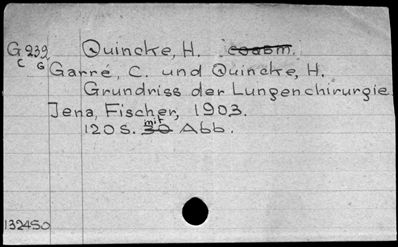 G 239 Quincke, H. coasm.
C G
Garré, C. und Quincke, H.
Grundriss der Lungenchirurgie
Jena, Fischer, 1903.
120 S. mit 30 Abb.
132450